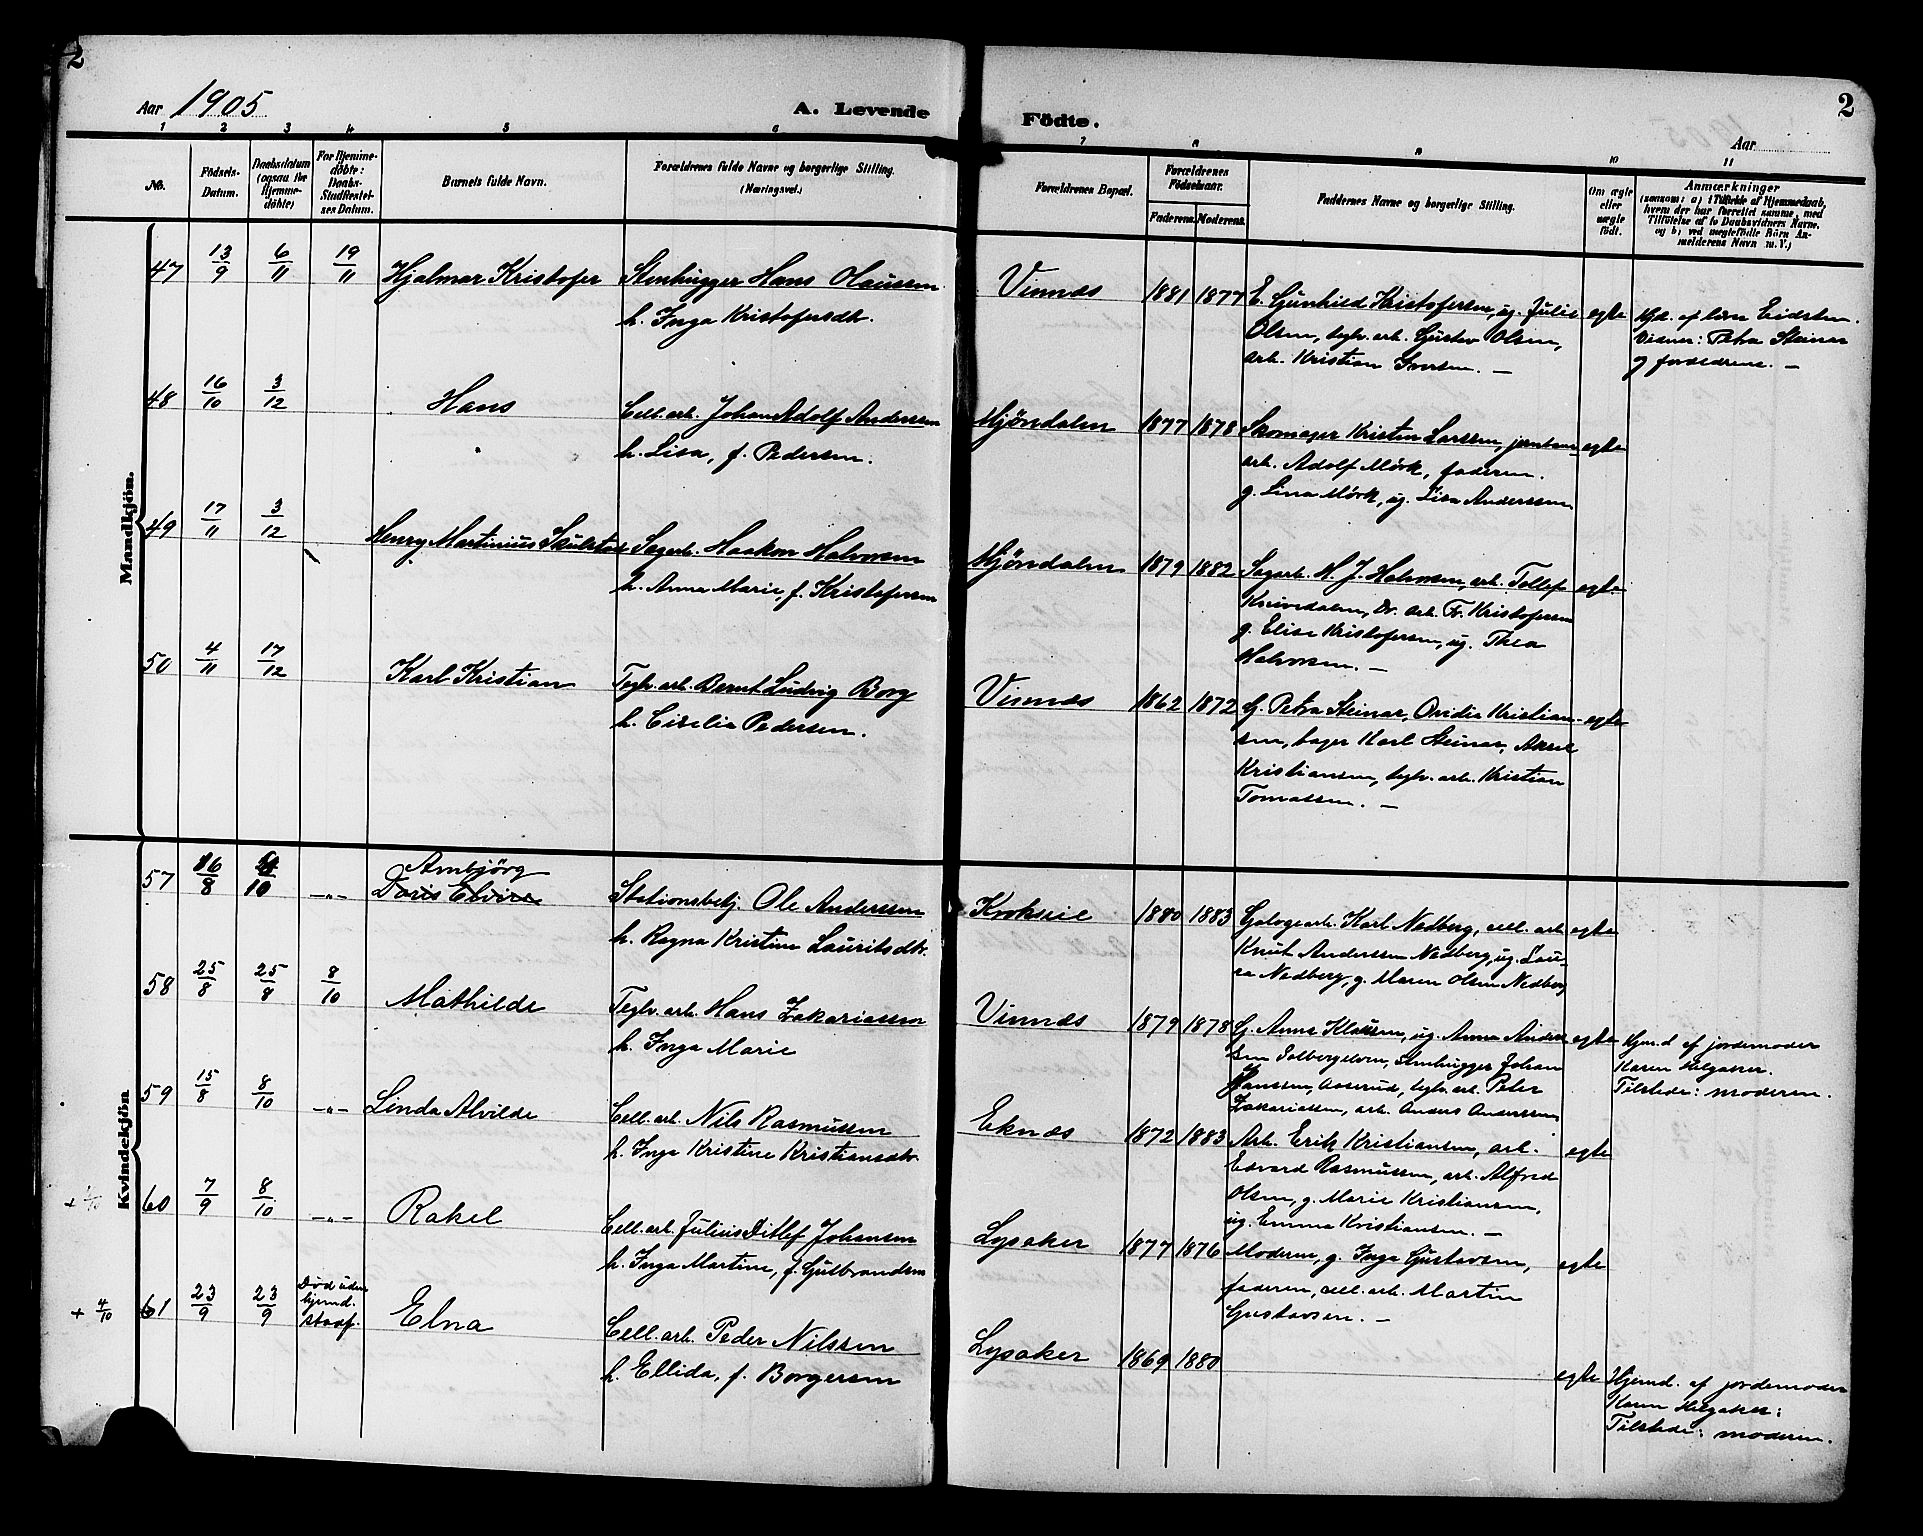 2
Aar 1905
A. Levende
Födte.
2
Aar
1 2 3 4 5 6 7 8 9 10 11
No.
Födsels-
Datum.
Daabsdatum
(ogsaa for
Hjemme-
döbte)
For Hjemme-
döbte:
Daabs-
Stadfæstel-
ses Datum.
Barnets fulde Navn.
Forældrenes fulde Navne og borgerlige Stilling.
(Næringsvei.)
Forældrenes Bopæl.
Forældrenes
Födselsaar.
Faderens. Moderens.
Faddernes Navne og borgerlige Stilling.
Om ægte
eller
uægte
födt.
Anmærkninger
(saasom: a) i Tilfælde af Hjemmedaab,
hvem der har forrettet samme, med
Tilföielse af to Daabsvidners Navne.
og b) ved uægtefödte Börn An-
melderens Navn m. V.)
Mandkjön.
47 13/9 6/11 19/11 Hjalmar Kristofer Stenhugger Hans Olaussen
h. Inga Kristofersdtr.
Vinnæs 1881 1877 E. Gunhild Kristofersen, ug. Julie
Olsen, teglv. arb. Gustav Olsen,
arb. Kristian Iversen. —
egte
Hjd. af Eidsten.
Vidner: Petra Steinar
og forældrene. —
48 16/10 3/12 Hans Cell. arb. Johan Adolf Anderssen
h. Lisa, f. Pedersen.
Mjöndalen 1877 1878 Skomager Kristen Larssen, jernban-
arb. Adolf Mörk, faderen.
g. Lina Mörk, ug. Lisa Anderssen
egte
49 17/11 3/12 Henry Martinius Skulstad Sagarb. Haakon Halvorsen
h. Anna Marie, f. Kristofersen
Mjöndalen 1879 1882 Sagarb. H. J. Halvorsen, arb. Tollef
Knivedalen, Dr. arb. Fr. Kristofersen
g. Elise Kristofersen, ug. Thea
Halvorsen. —
egte
50 4/11 17/12 Karl Kristian Teglv. arb. Bernt Ludvig Borg
h. Cisilia Pedersen.
Vinnæs 1862 1872 G. Petra Steinar, Ovidia Kristian-
sen, bager Karl Steinar, Aksel
Kristiansen, teglv. arb. Kristian
Tomassen. —
egte
Kvindekjön
57 16/8 /10 —"— Arnbjörg
Doris Elvire
Stationsbetj. Ole Anderssen
h. Ragna Kristine Lauritsdtr.
Krokseie 1880 1883 Karl Nedberg, cell. arb.
Knut Anderssen Nedberg, ug. Lau-
ra Nedberg, g. Maren Olsen Nedberg
egte
58 25/8 25/8 8/10 Mathilde Teglv. arb. Hans Zakariassen
h. Inga Marie
Vinnæs 1879 1878 G. Anne Klausen, ug. Anna Ander-
sen Solbergelven, stenhugger Johan
Hanssen, Aaserud, teglv. arb. Peter
Zakariassen, arb. Anders Anderssen
egte
Hjem.d af jordemoder
Karen Helgaker.
Tilstede: moderen.
59 15/8 8/10 —"— Linda Alvilde Cell. arb. Nils Rasmussen
h. Inga Kristine Kristiansdtr.
Eknæs 1872 1883 Arb. Erik Kristiansen, arb.
Edvard Rasmussen, arb. Alfred
Olsen, g. Marie Kristiansen,
ug. Emma Kristiansen. —
egte
60 7/9 8/10 —"— Rakel Cell. arb. Julius Ditlef Johansen
h. Inga Martine, f. Gulbrandsen
Lysaker 1877 1876 Moderen, g. Inga Gustavsen,
faderen, cell. arb. Martin
Gustavsen. —
egte
+ 4/10 61 23/9 23/9 Död uden
hjemd.
stadf.
Elna Cell. arb. Peder Nilssen
h. Ellida, f. Borgersen
Lysaker 1869 1880
egte
Hjemd. af jordemoder
Karen Helgaker:
Tilstede: moderen.